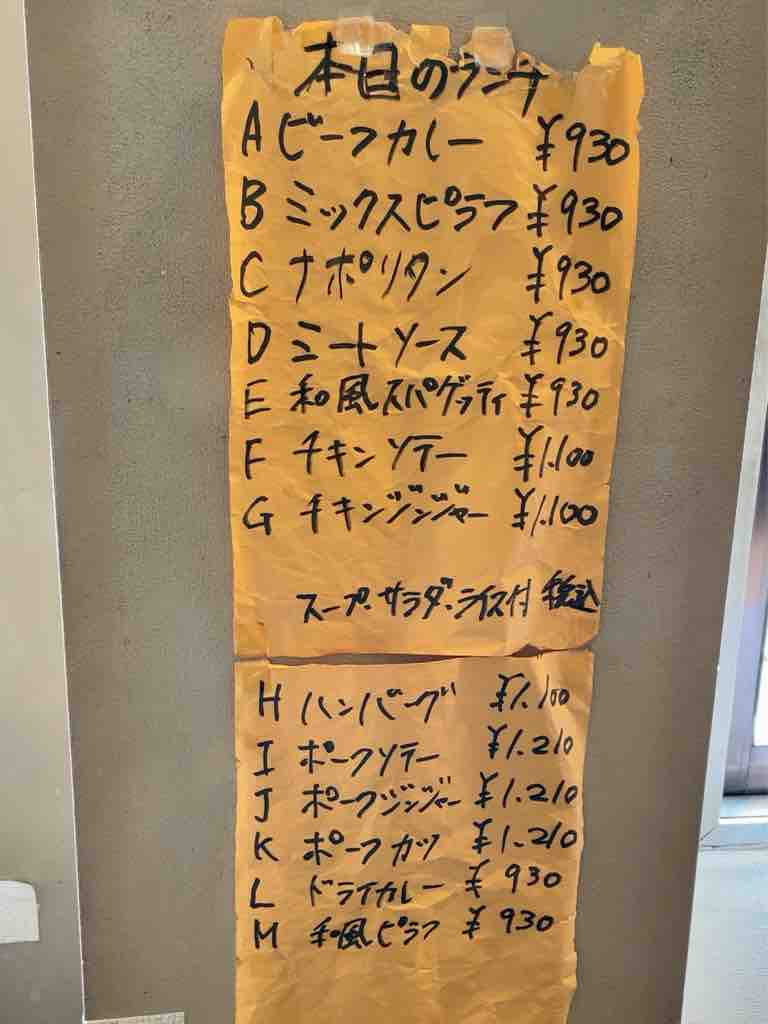 本日のランチ
A ビーフカレー ¥930
B ミックスピラフ ¥930
C ナポリタン ¥930
D ミートソース ¥930
E 和風スパゲッティ ¥930
F チキンソテー ¥1.100
G チキンジンジャー ¥1.100
スープ・サラダ・ライス付 税込
H ハンバーグ ¥1.100
I ポークソテー ¥1.210
J ポークジンジャー ¥1.210
K ポークカツ ¥1.210
L ドライカレー ¥930
M 和風ピラフ ¥930